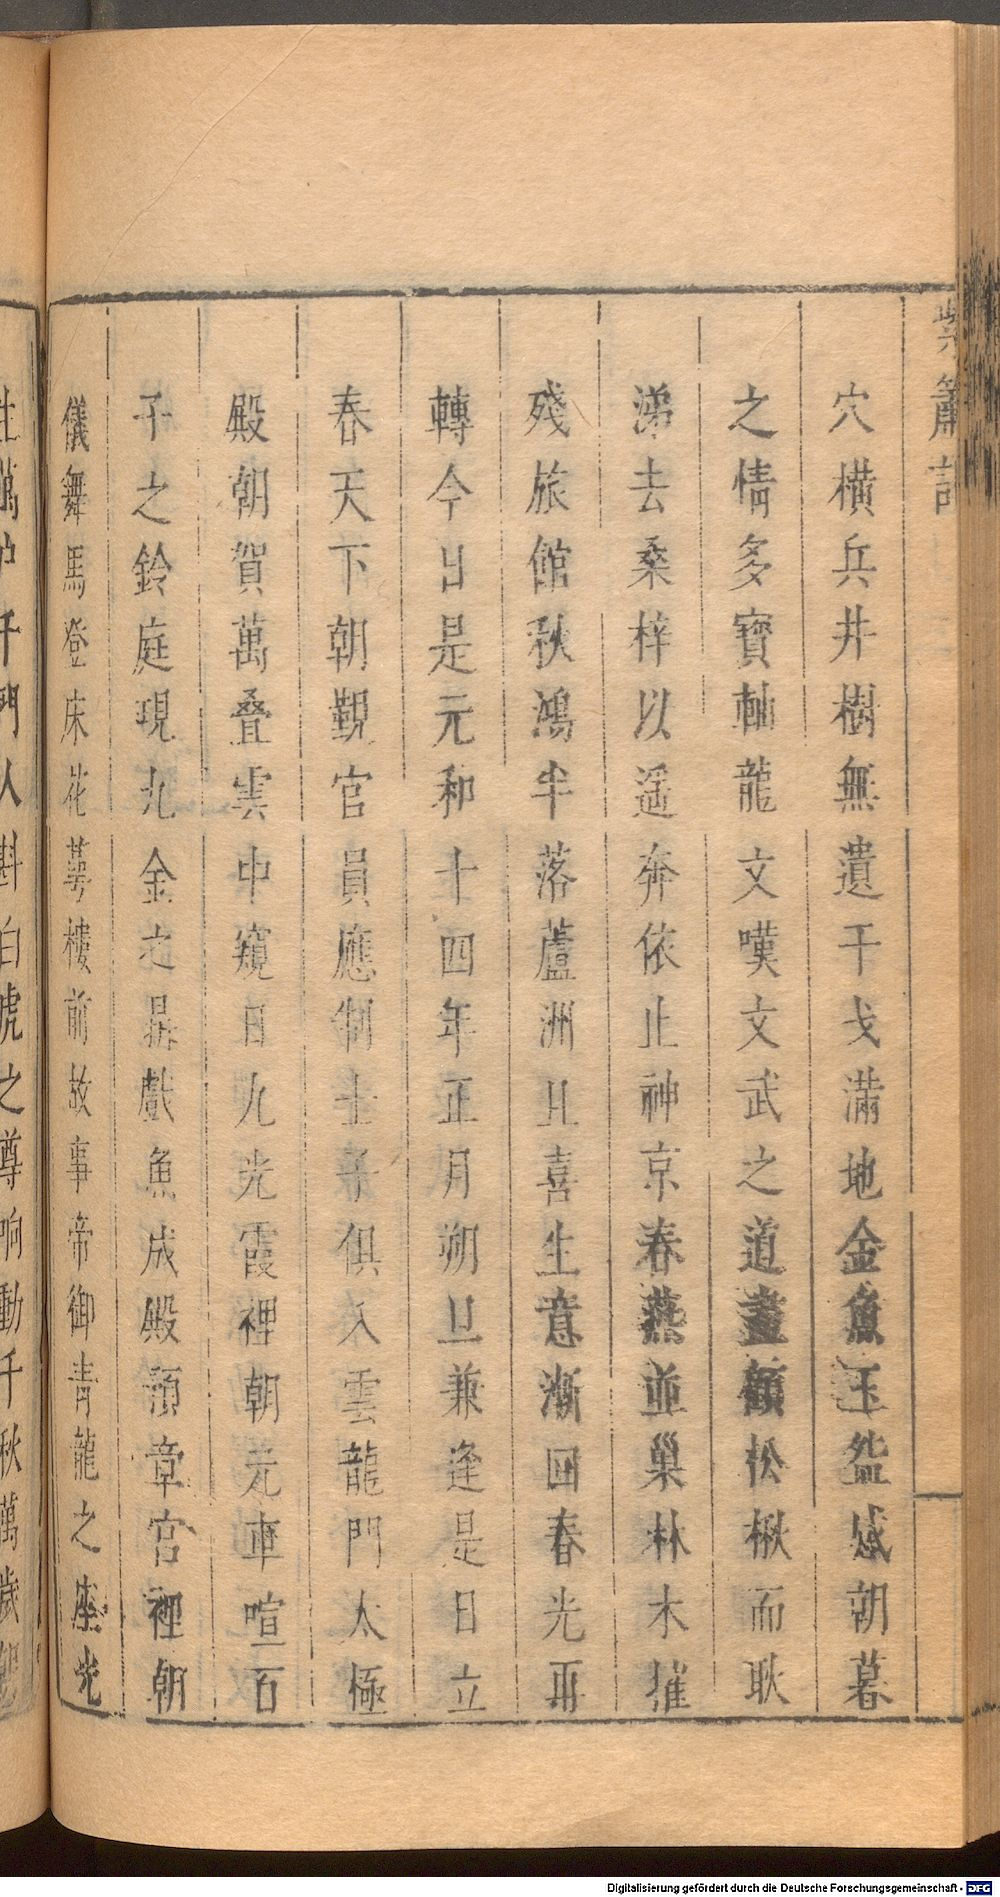 紫簫記
穴橫兵井樹無遺干戈滿地金魚玉盌感朝暮
之情多寶軸龍文嘆文武之道盡顧松楸而耿
涕去桑梓以遥奔依止神京春燕並巢林木摧
殘旅館秋鴻半落蘆洲且喜生意漸回春光再
轉今日是元和十四年正月朔旦兼逢是日立
春天下朝覲官員應制士子俱入雲龍門太極
殿朝賀萬叠雲中窺日九光霞裡朝元車喧百
子之鈴庭現九金之鼎戲魚成殿頹章宮裡朝
儀舞馬登床花萼樓前故事帝御青龍之座光
千門人斟白虎之尊响動千秋萬歲
Digitalisierung gefördert durch die Deutsche Forschungsgemeinschaft - DFG